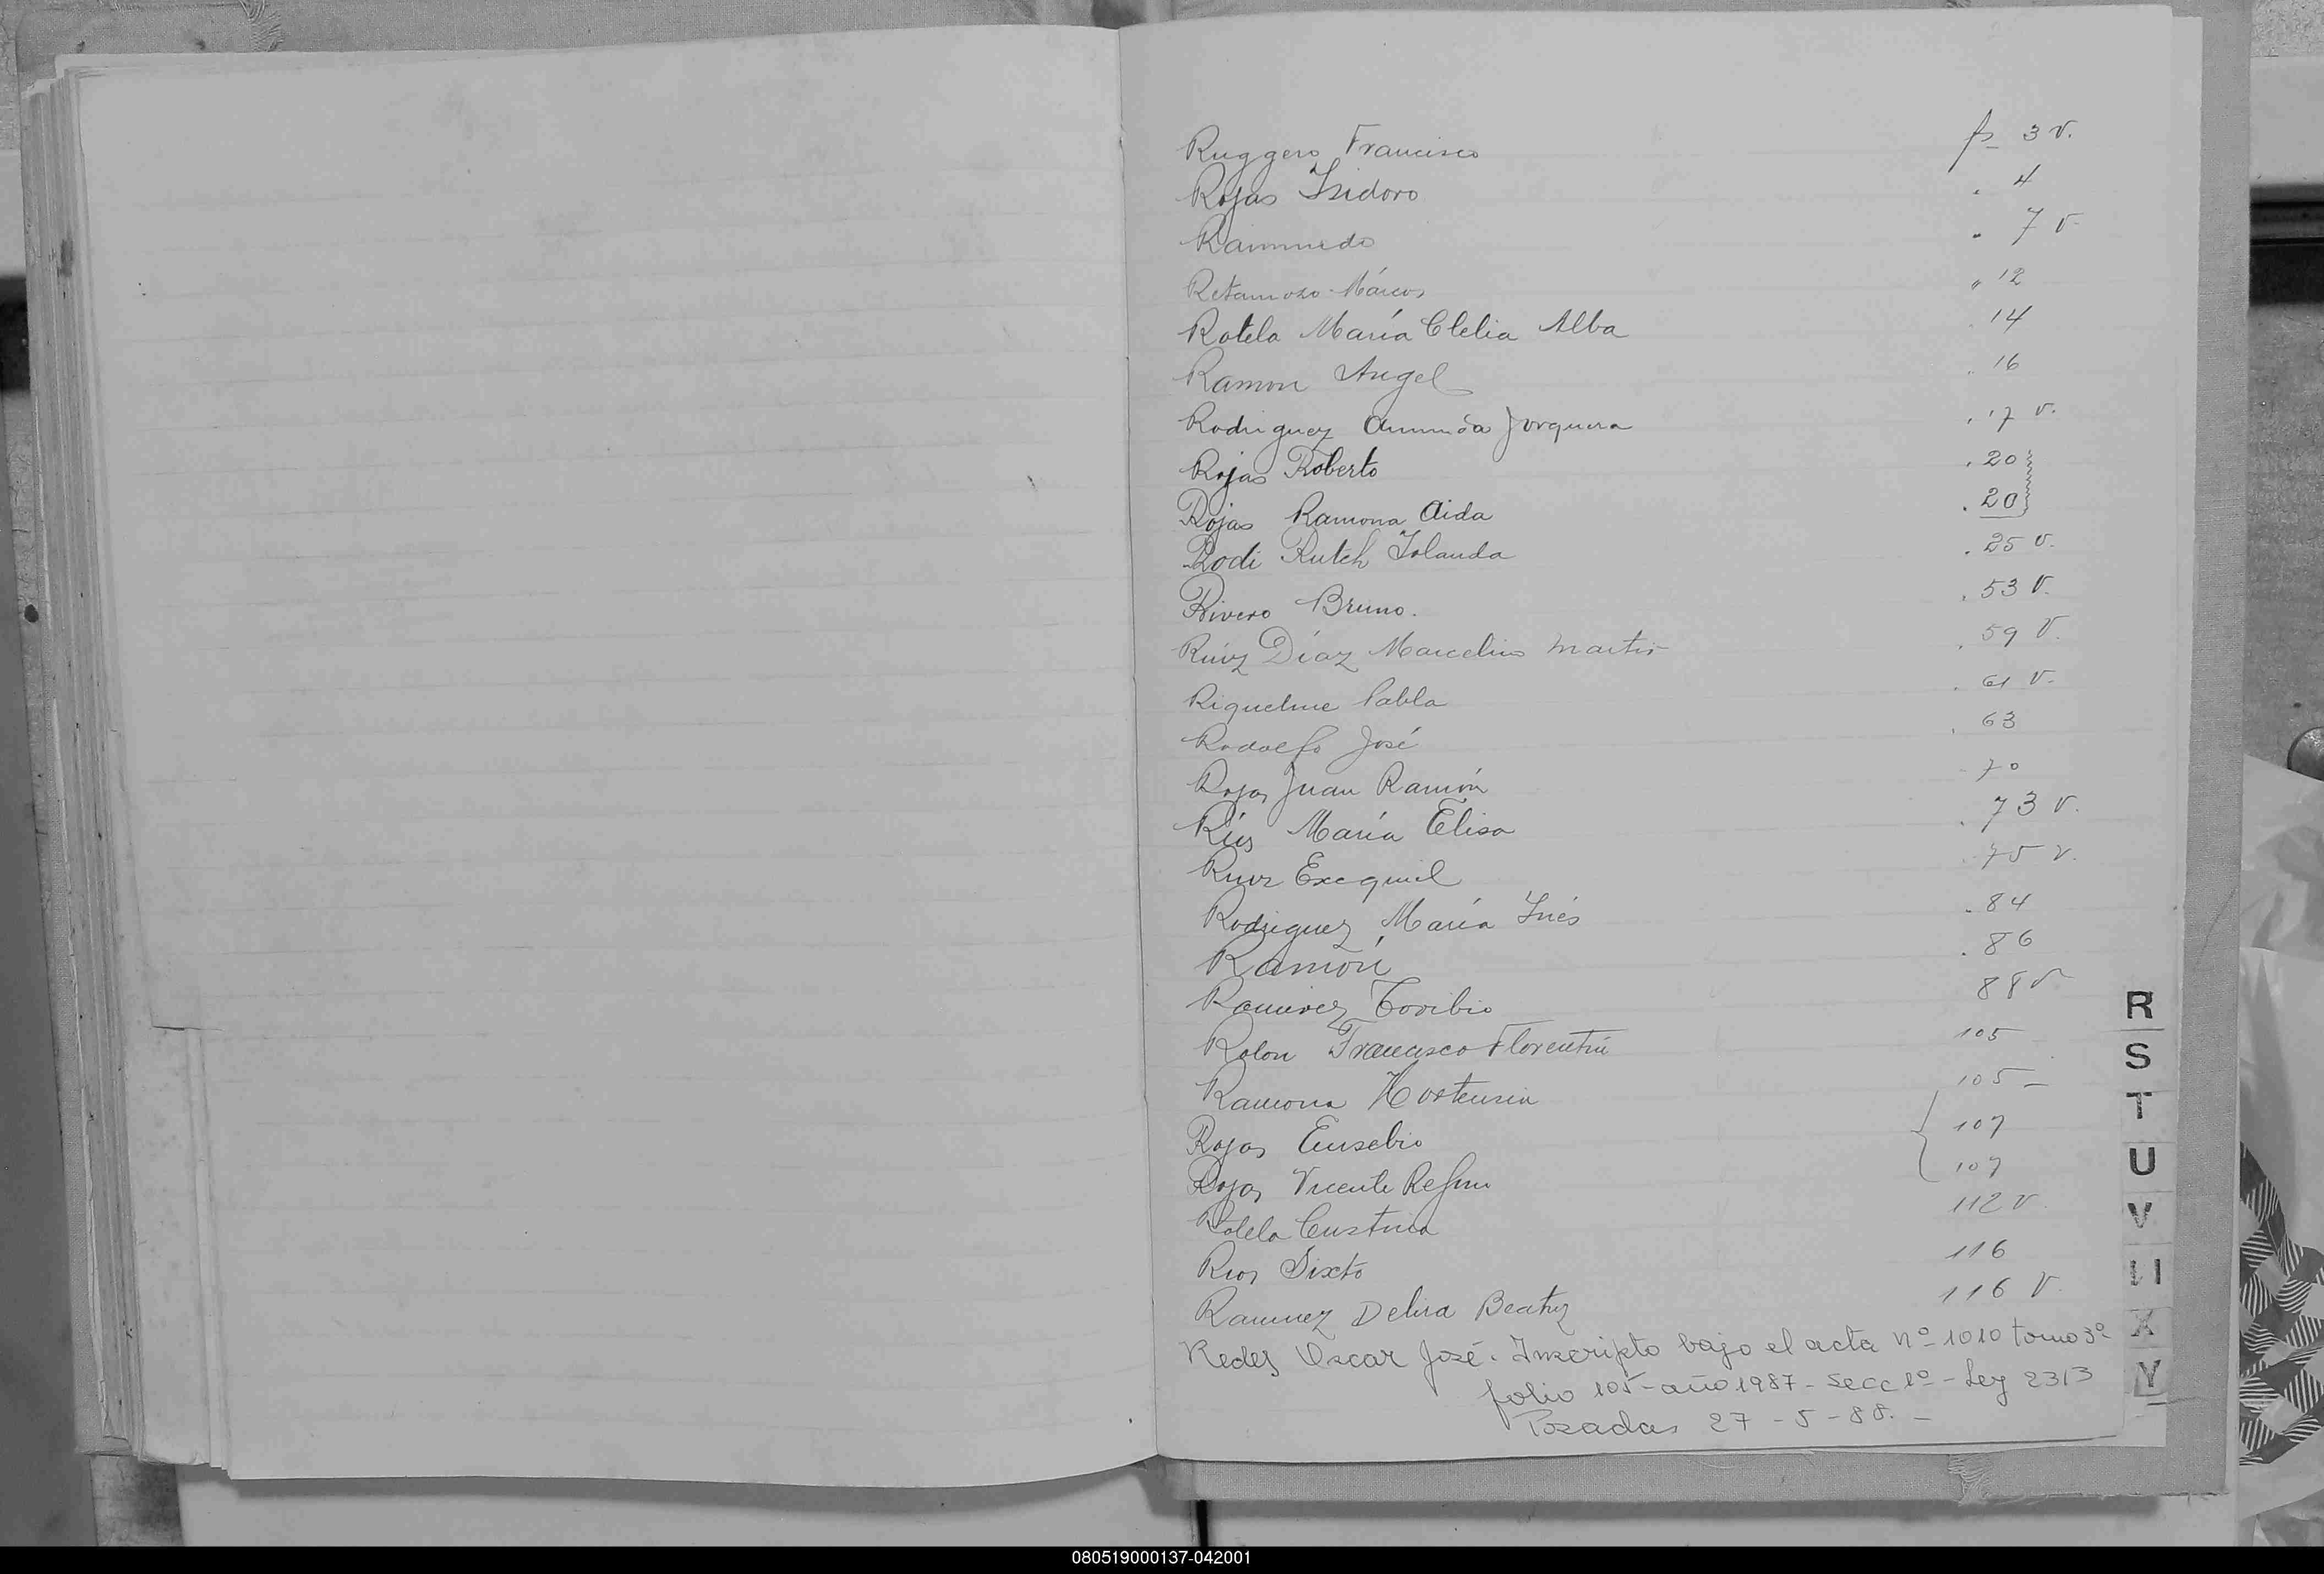 Ruggero Francisco fs 3 v.
Rojas Isidoro " 4
Raimundo " 7 v
Retamozo Márcos " 12
Rotela María Clelia Alba 14
Ramon Angel . 16
Rodriguez Jorquera . 17 v.
Rojas Roberto . 20
Rojas Ramona Aida . 20
Rodi Ruteh Iolanda . 25 v.
Rivero Bruno. . 53 v.
Ruiz Díaz Marcelino Martin . 59 v.
Riquelme Pabla . 61 v.
Rodolfo José . 63
Rojas Juan Ramón 70
Ríos María Elisa . 73 v.
Ruiz Exequiel . 75 v.
Rodriguez María Inés . 84
Ramón . 86
Ramirez Toribio 88 v
Rolon Francisco Florentin 105
Ramona Hortensia 105 -
Rojas Eusebio 107
Rojas Vicente 107
Rotela 112 v.
Rios Sixto 116
Ramirez Delira Beatriz 116 v.
Redes Oscar José. Inscripto bajo el acta nº 1010 tomo 3º
folio 105 - año 1987 - Secc 1º - Ley 2313
Posadas 27 - 5 - 88. -
R
S
T
U
V
X
Y
080519000137-042001